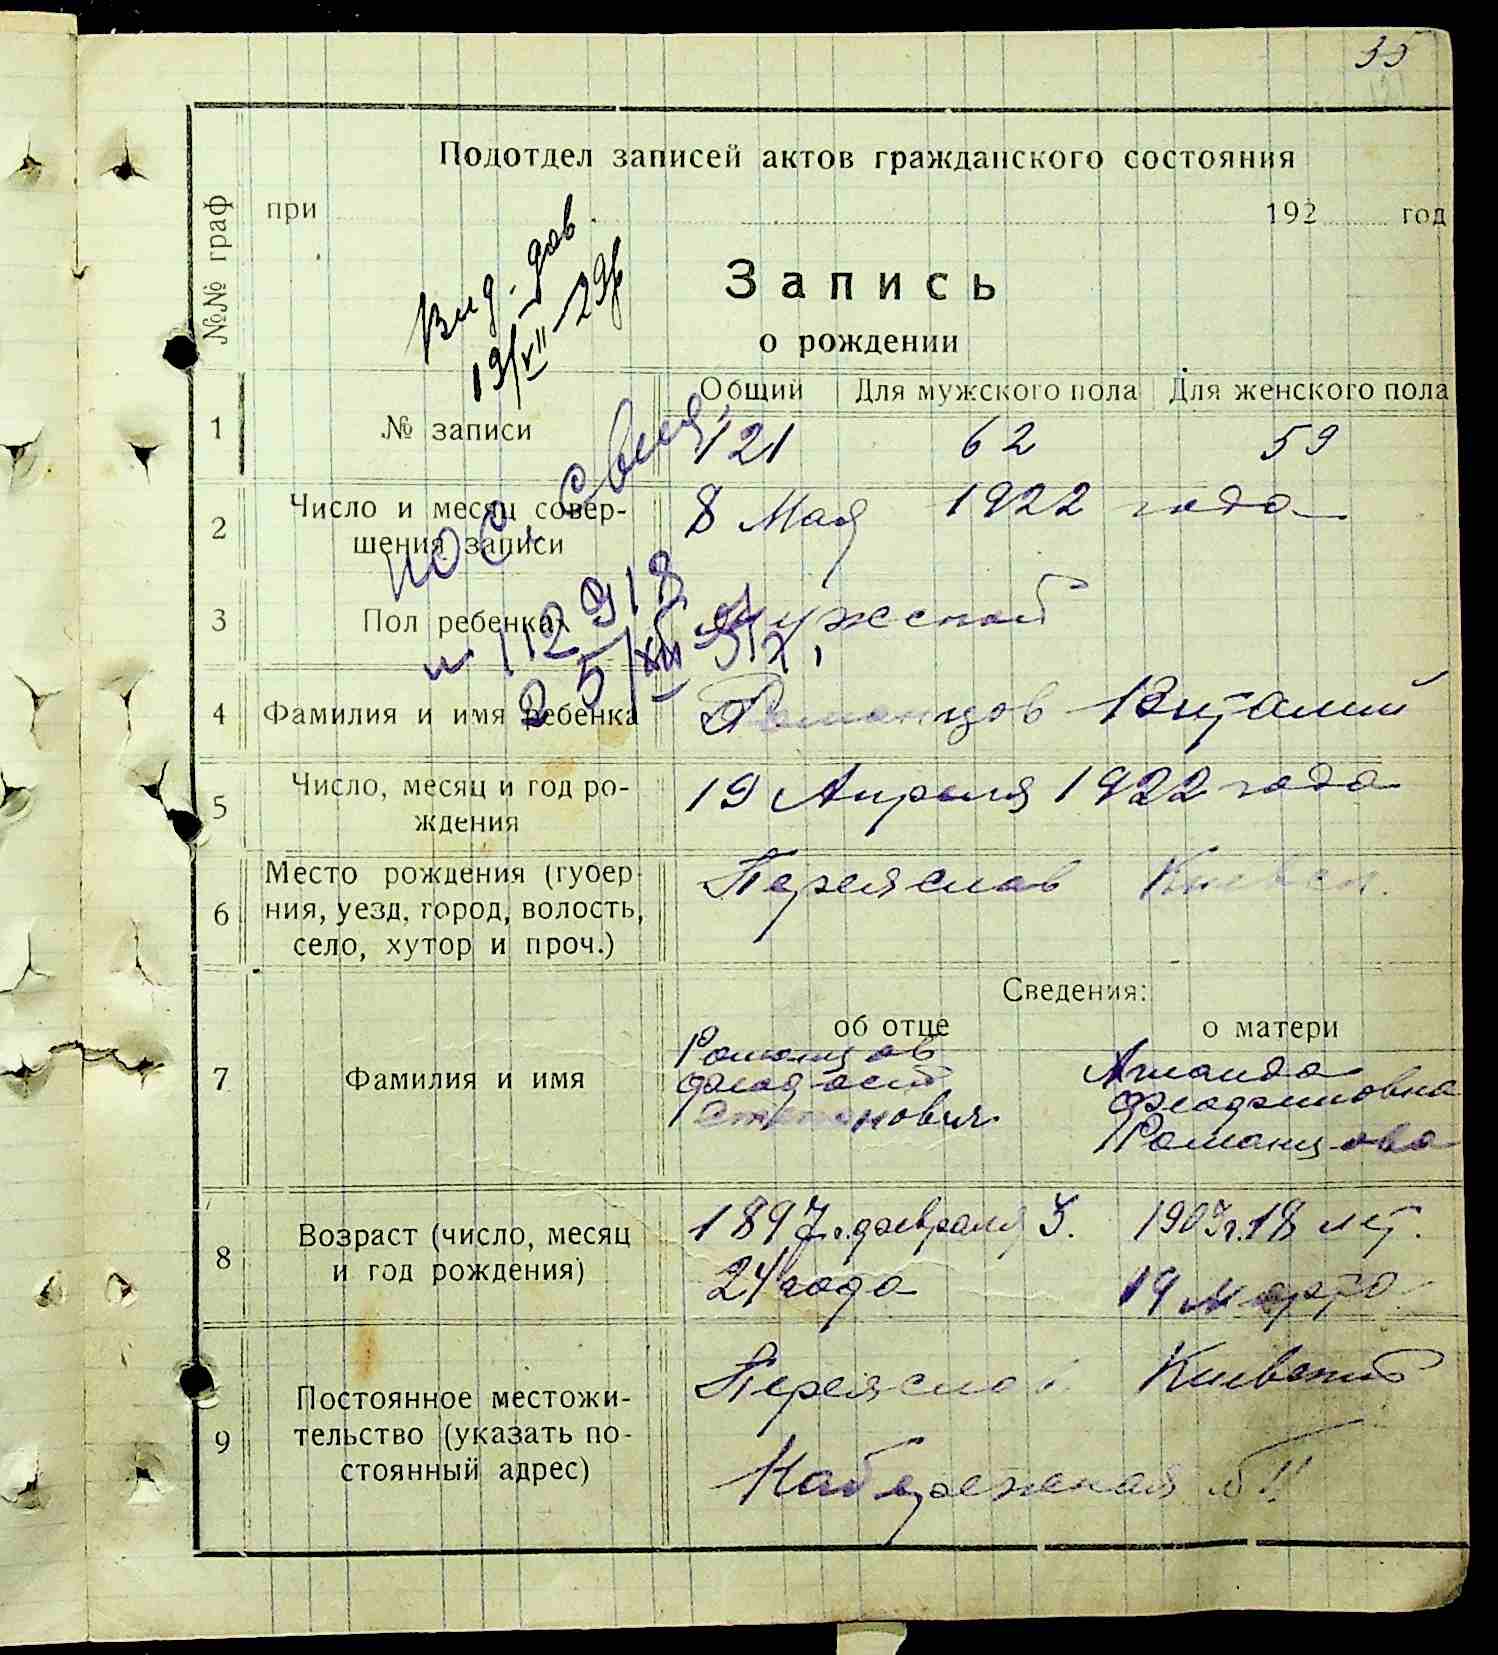 35
Подотдел записей актов гражданского состояния
при 192 год
№№ граф
Вид. дов.
19/XII-29р
Запись
о рождении
Общий Для мужского пола Для женского пола
1 № записи 121 62 59
2 Число и месяц совер-
шения записи 8 Мая 1922 года
3 Пол ребенка Мужской
4 Фамилия и имя ребенка Романцов Виталий
5 Число, месяц и год ро-
ждения 19 Апреля 1922 года
6 Место рождения (губер
ния, уезд, город, волость,
село, хутор и проч.) Переяслав Киевск.
Сведения:
об отце о матери
7 Фамилия и имя
Романцов
Степанович
Романцова
8 Возраст (число, месяц
и год рождения)
1897 г. февраля 3. 1903 г. 18 лет.
24 года 19 марта
9 Постоянное местожи-
тельство (указать по-
стоянный адрес)
Переяслав Киевский
Набережная